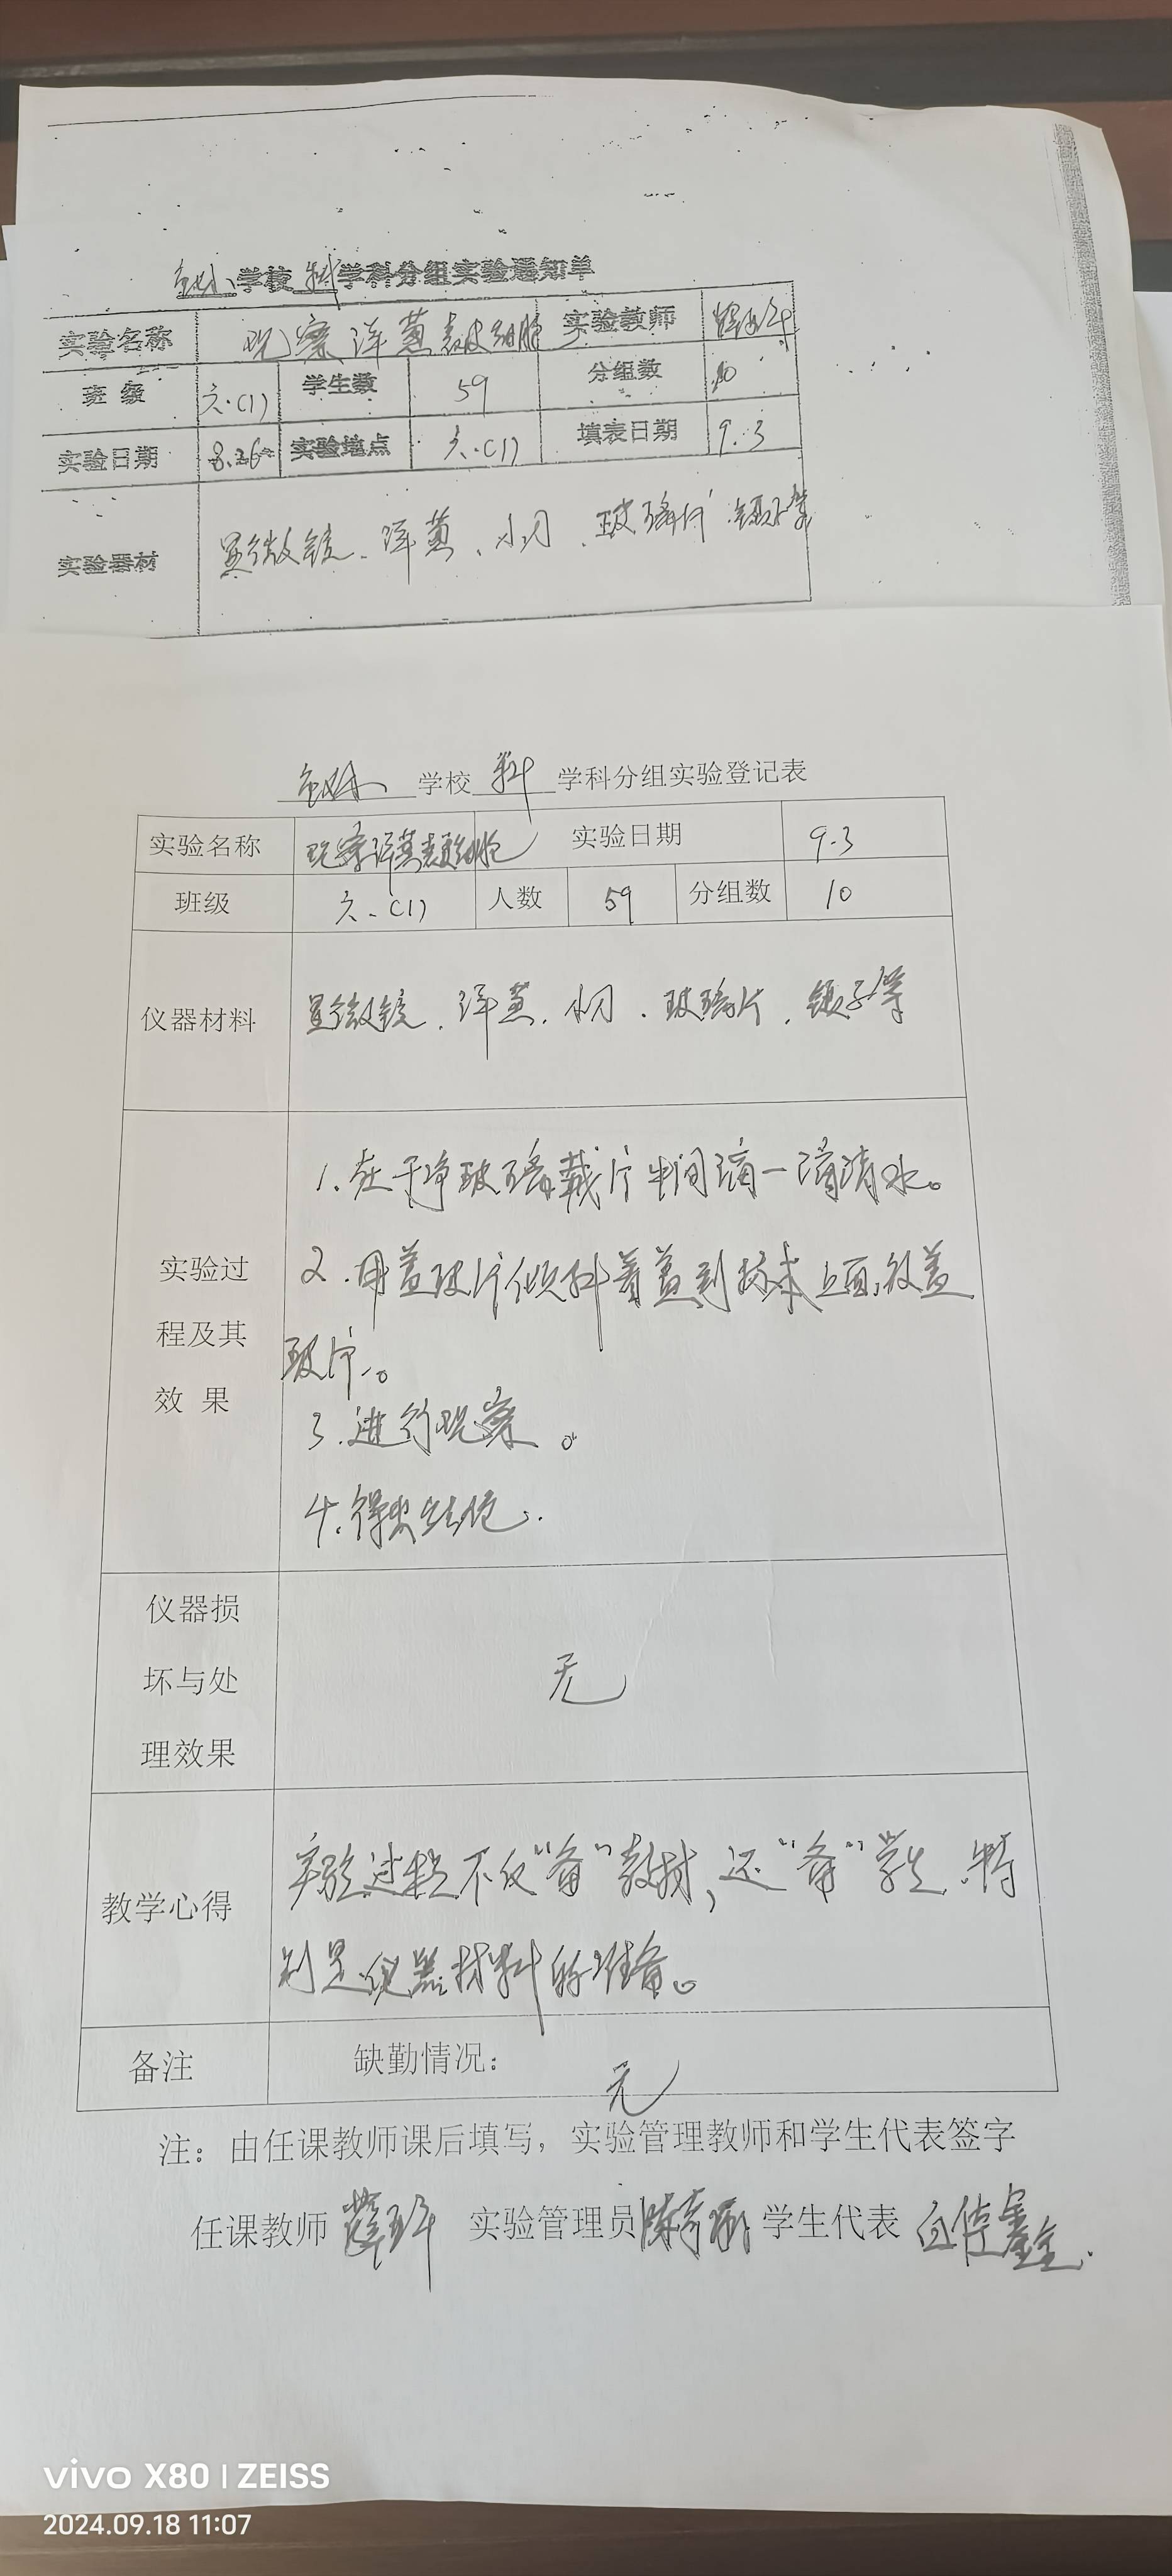 学校 科 学科分组实验通知单
实验名称 观察洋葱表皮细胞 实验教师
班 级 六.(1) 学生数 59 分组数 10
实验日期 8.26 实验地点 六.(1) 填表日期 9.3
实验器材 显微镜、洋葱、小刀、玻璃片 镊子等
学校 科 学科分组实验登记表
实验名称 观察洋葱表皮细胞 实验日期 9.3
班级 六、(1) 人数 59 分组数 10
仪器材料 显微镜、洋葱、小刀、玻璃片、镊子等
1.在干净玻璃载片中间滴一滴清水。
实验过
2.用盖玻片倾斜着盖到标本上面,放盖
程及其
玻片。
效 果
3.进行观察。
4.得出结论.
仪器损
坏与处
无
理效果
实验过程不仅“备”教材,还“备”学生.特
教学心得
别是仪器材料的准备。
备注 缺勤情况: 无
注:由任课教师课后填写,实验管理教师和学生代表签字
任课教师 实验管理员 学生代表
vivo X80 | ZEISS
2024.09.18 11:07